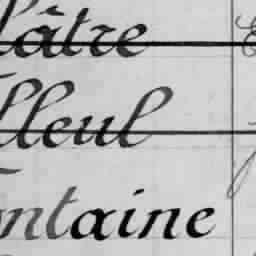 lâtre
lleul
ntaine